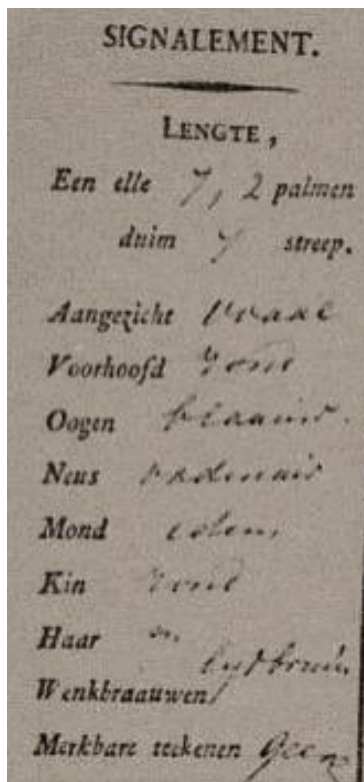 SIGNALEMENT.
LENGTE,
Een elle 7, 2 palmen
duim 7 streep.
Aangezicht ovaal
Voorhoofd rond
Oogen blaauw.
Neus ordinair
Mond idem
Kin rond
Haar en
ligtbruin
Wenkbraauwen
Merkbare teekenen Geene